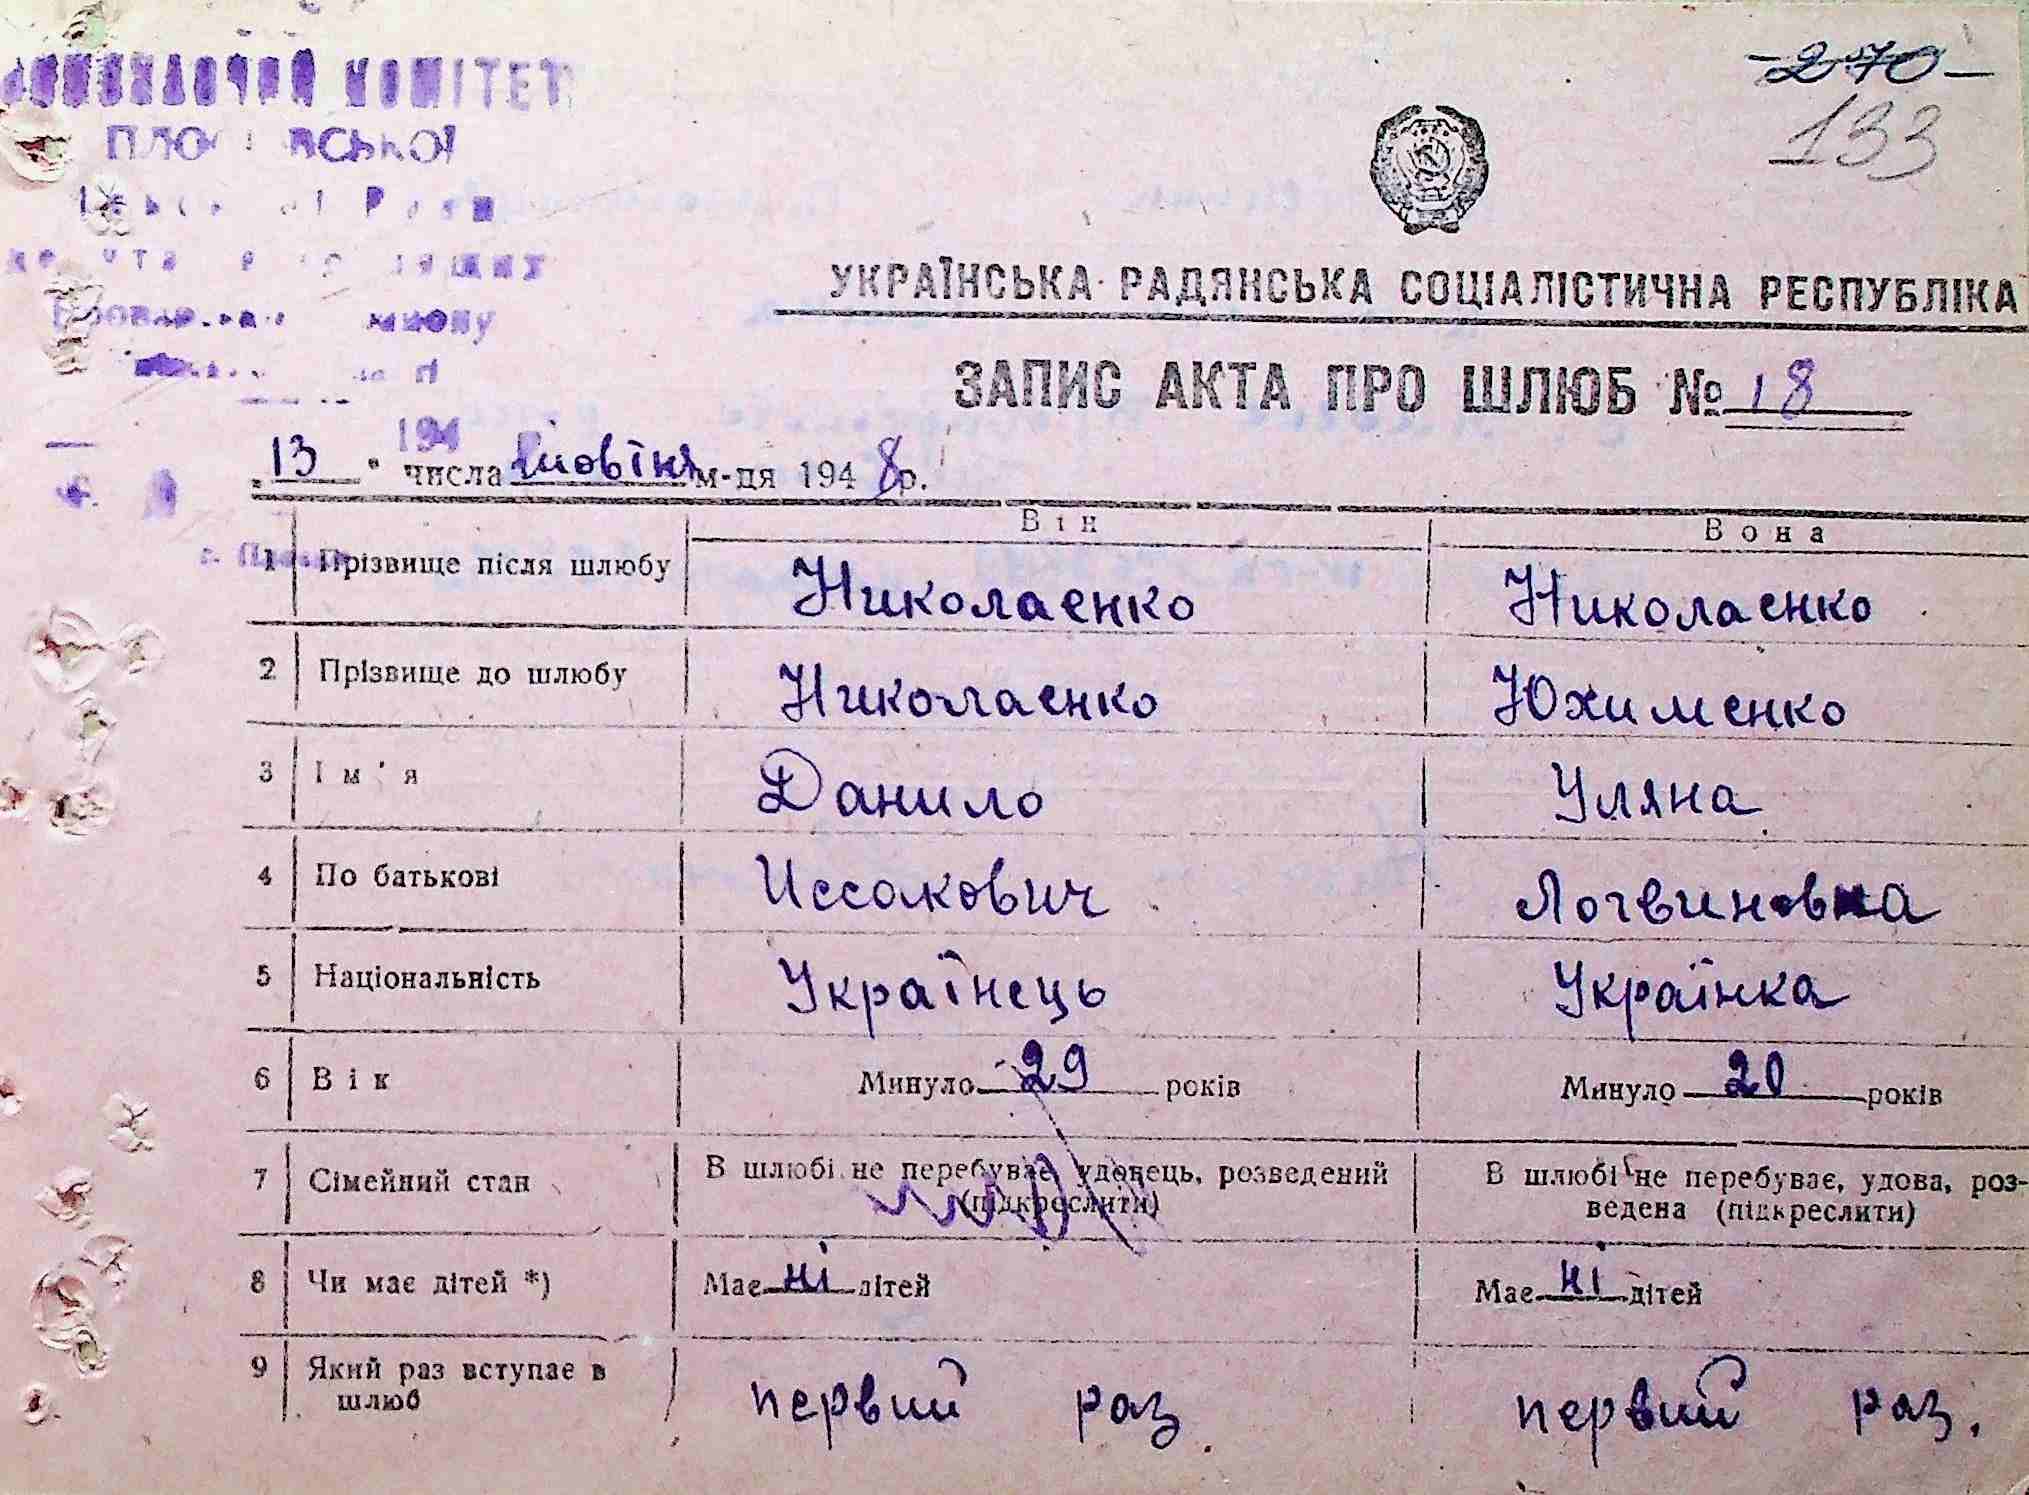 КОМІТЕТ
-270-
133
УКРАЇНСЬКА РАДЯНСЬКА СОЦІАЛІСТИЧНА РЕСПУБЛІКА
ЗАПИС АКТА ПРО ШЛЮБ № 18
194
13 числа м-ця 1948 р.
Він Вона
1 Прізвище після шлюбу Николаєнко Николаєнко
2 Прізвище до шлюбу Николаєнко Юхименко
3 Ім'я Данило Уляна
4 По батькові Иссакович Логвиновна
5 Національність Українець Українка
6 Вік Минуло 29 років Минуло 20 років
7 Сімейний стан В шлюбі не перебуває, удовець, розведений (підкреслити) В шлюбі не перебуває, удова, роз-
ведена (підкреслити)
8 Чи має дітей *) Має ні дітей Має ні дітей
9 Який раз вступає в
шлюб первий раз. первий раз.